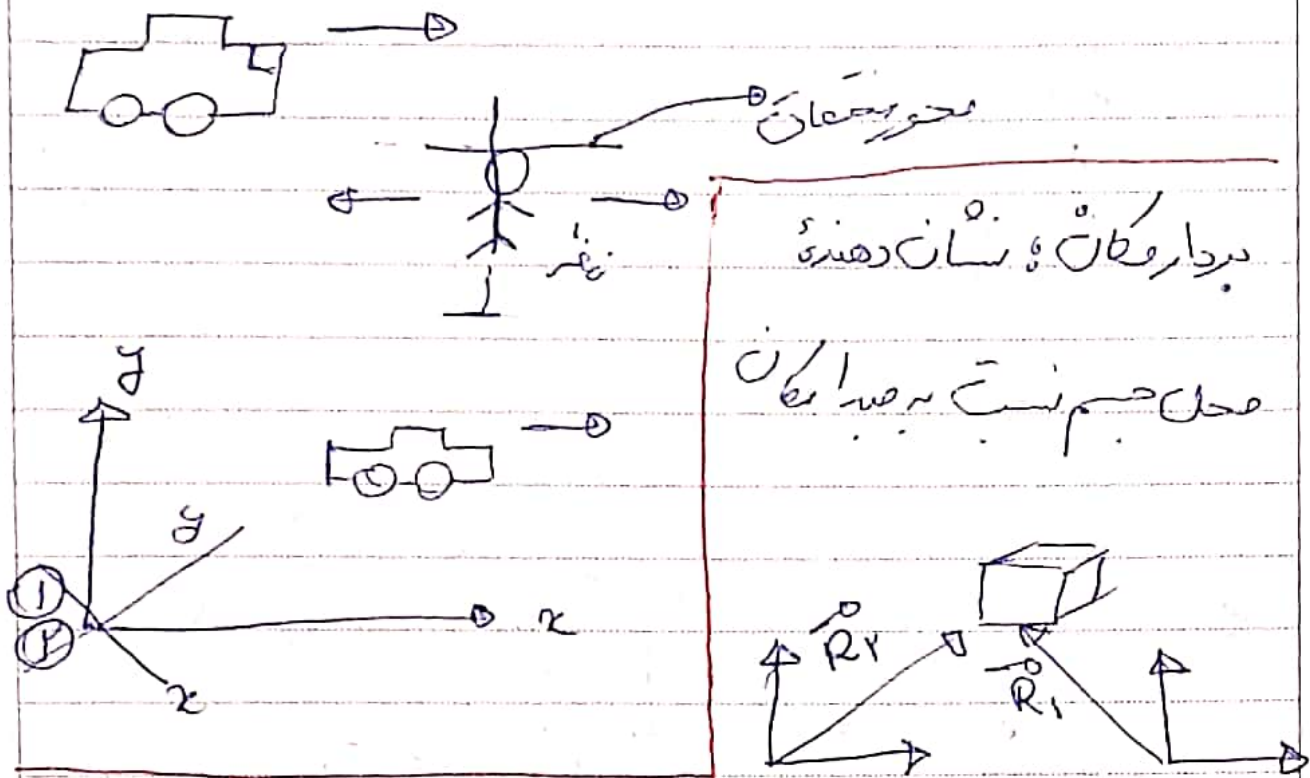 محور مختصات
ناظر
بردار مکان : نشان دهندهٔ
محل جسم نسبت به مبدا مکان
y
y
①
②
x
x
R۲
R۱